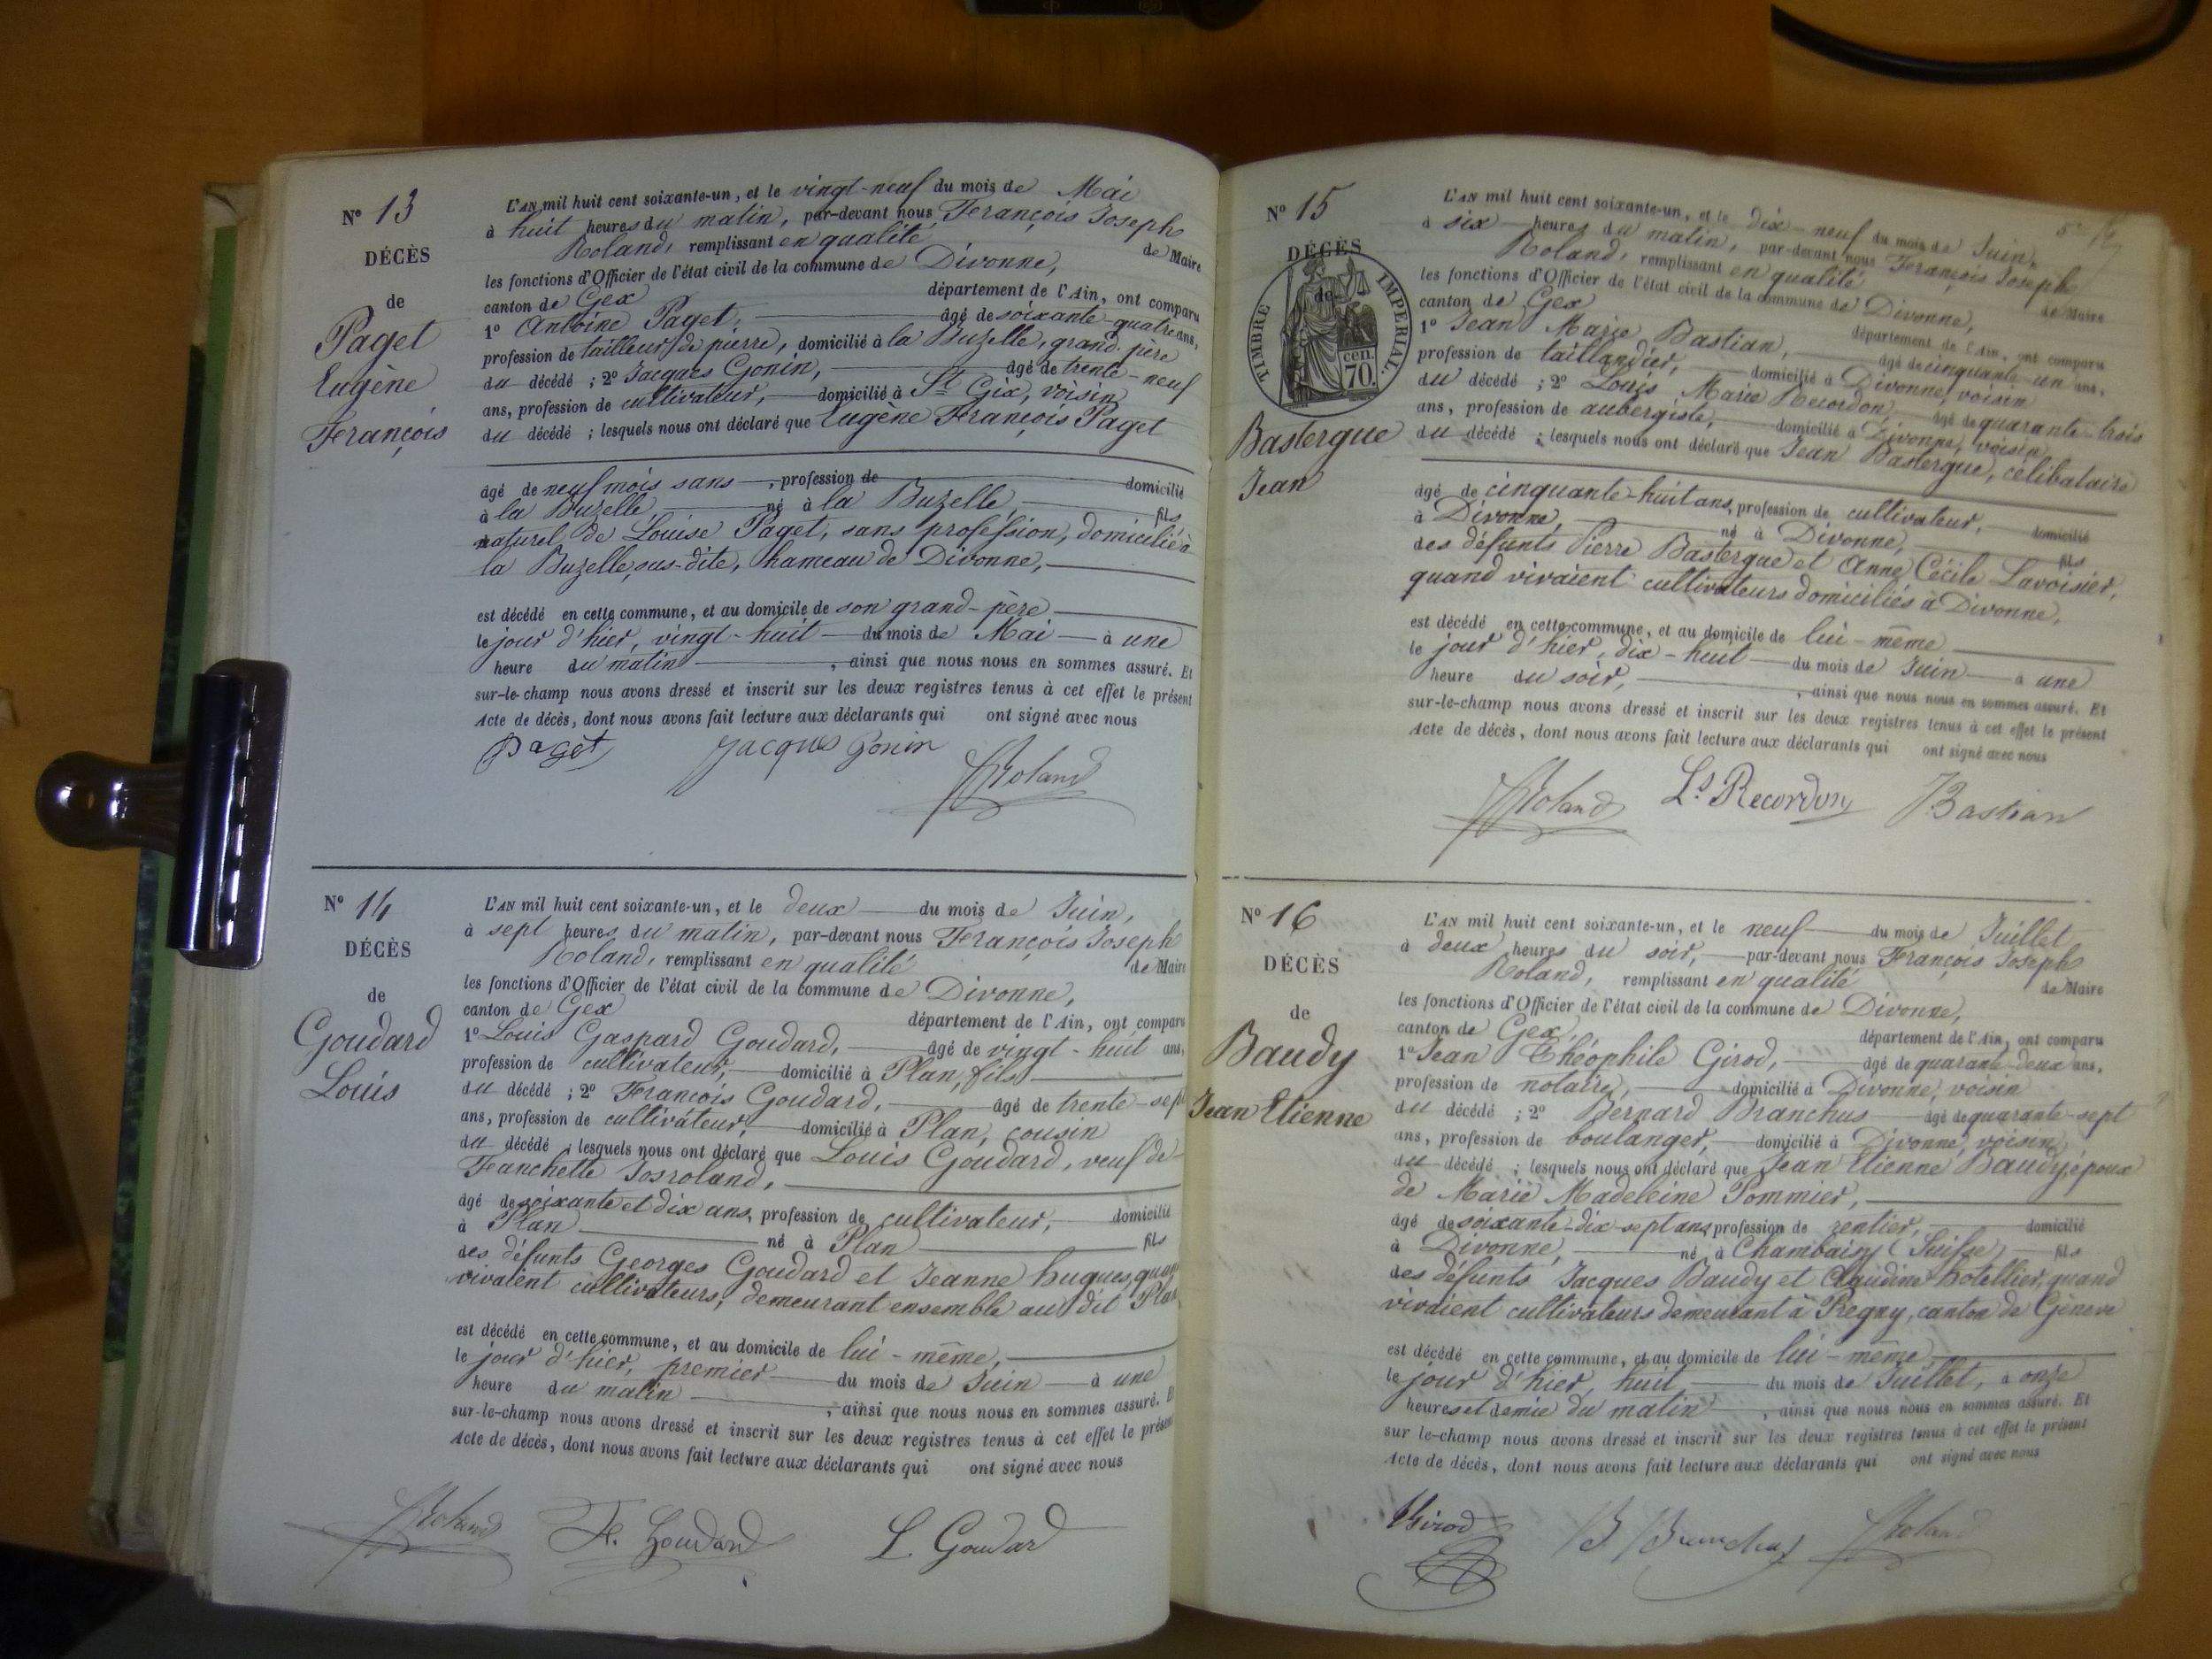 N° 13
DÉCÈS
de
Paget
Eugène
François
L'AN mil huit cent soixante-un, et le vingt-neuf du mois de Mai
à huit heures du matin, par-devant nous François Joseph
Roland, remplissant en qualité de Maire
les fonctions d'Officier de l'état civil de la commune de Divonne,
canton de Gex département de l'Ain, ont comparu
1° Antoine Paget, âgé de soixante-quatre ans,
profession de tailleur de pierre, domicilié à la Buzelle, grand-père
du décédé ; 2° Jacques Gonin, âgé de trente-neuf
ans, profession de cultivateur, domicilié à St Gix, voisin
du décédé ; lesquels nous ont déclaré que Eugène François Paget
âgé de neuf mois sans, profession de domicilié
à la Buzelle, né à la Buzelle, fils
naturel de Louise Paget, sans profession, domicilié à
la Buzelle, sus-dite, hameau de Divonne,
est décédé en cette commune, et au domicile de son grand-père
le jour d'hier, vingt-huit du mois de Mai à une
heure du matin, ainsi que nous nous en sommes assuré. Et
sur-le-champ nous avons dressé et inscrit sur les deux registres tenus à cet effet le présent
Acte de décès, dont nous avons fait lecture aux déclarants qui ont signé avec nous
Paget Jacques Gonin Roland
N° 14
DÉCÈS
de
Goudard
Louis
L'AN mil huit cent soixante-un, et le deux du mois de Juin,
à sept heures du matin, par-devant nous François Joseph
Roland, remplissant en qualité de Maire
les fonctions d'Officier de l'état civil de la commune de Divonne,
canton de Gex département de l'Ain, ont comparu
1° Louis Gaspard Goudard, âgé de vingt-huit ans,
profession de cultivateur, domicilié à Plan, fils
du décédé ; 2° François Goudard, âgé de trente-sept
ans, profession de cultivateur, domicilié à Plan, cousin
du décédé ; lesquels nous ont déclaré que Louis Goudard, veuf de
Franchette Josroland,
âgé de soixante et dix ans, profession de cultivateur, domicilié
à Plan né à Plan fils
des défunts Georges Goudard et Jeanne hugues, quand
vivaient cultivateurs, demeurant ensemble au dit Plan
est décédé en cette commune, et au domicile de lui-même,
le jour d'hier, premier du mois de Juin à une
heure du matin, ainsi que nous nous en sommes assuré. Et
sur-le-champ nous avons dressé et inscrit sur les deux registres tenus à cet effet le présent
Acte de décès, dont nous avons fait lecture aux déclarants qui ont signé avec nous
Roland F. Goudard L. Goudard
N° 15
DÉCÈS
de
TIMBRE IMPERIAL
cen. 70.
Bastergue
Jean
L'AN mil huit cent soixante-un, et le dix-neuf du mois de Juin,
à six heures du matin, par-devant nous François Joseph
Roland, remplissant en qualité de Maire
les fonctions d'Officier de l'état civil de la commune de Divonne,
canton de Gex département de l'Ain, ont comparu
1° Jean Marie Bastian, âgé de cinquante-un ans,
profession de taillandier, domicilié à Divonne, voisin
du décédé ; 2° Louis Marie Recordon âgé de quarante-trois
ans, profession de aubergiste, domicilié à Divonne, voisin
du décédé ; lesquels nous ont déclaré que Jean Bastergue, célibataire
âgé de cinquante-huit ans, profession de cultivateur, domicilié
à Divonne, né à Divonne, fils
des défunts Pierre Bastergue et Anne Cécile Lavoisier,
quand vivaient cultivateurs domiciliés à Divonne,
est décédé en cette commune, et au domicile de lui-même
le jour d'hier, dix-huit du mois de Juin à une
heure du soir, ainsi que nous nous en sommes assuré. Et
sur-le-champ nous avons dressé et inscrit sur les deux registres tenus à cet effet le présent
Acte de décès, dont nous avons fait lecture aux déclarants qui ont signé avec nous
Roland Ls Recordon J Bastian
N° 16
DÉCÈS
de
Baudy
Jean Etienne
L'AN mil huit cent soixante-un, et le neuf du mois de Juillet
à deux heures du soir, par-devant nous François Joseph
Roland, remplissant en qualité de Maire
les fonctions d'Officier de l'état civil de la commune de Divonne,
canton de Gex, département de l'Ain, ont comparu
1° Jean Théophile Girod, âgé de quarante-deux ans,
profession de notaire, domicilié à Divonne, voisin
du décédé ; 2° Bernard Branchus âgé de quarante-sept
ans, profession de boulanger, domicilié à Divonne, voisin
du décédé ; lesquels nous ont déclaré que Jean Etienne Baudy, époux
de Marie Madeleine Pommier,
âgé de soixante-dix-sept ans profession de rentier, domicilié
à Divonne, né à Chambaisy (Suisse) fils
des défunts Jacques Baudy et Claudine hotellier, quand
vivaient cultivateurs demeurant à Pregny, canton de Genève
est décédé en cette commune, et au domicile de lui-même
le jour d'hier, huit du mois de Juillet, à onze
heures et demie du matin, ainsi que nous nous en sommes assuré. Et
sur le-champ nous avons dressé et inscrit sur les deux registres tenus à cet effet le présent
Acte de décès, dont nous avons fait lecture aux déclarants qui ont signé avec nous
Girod B. Branchus Roland